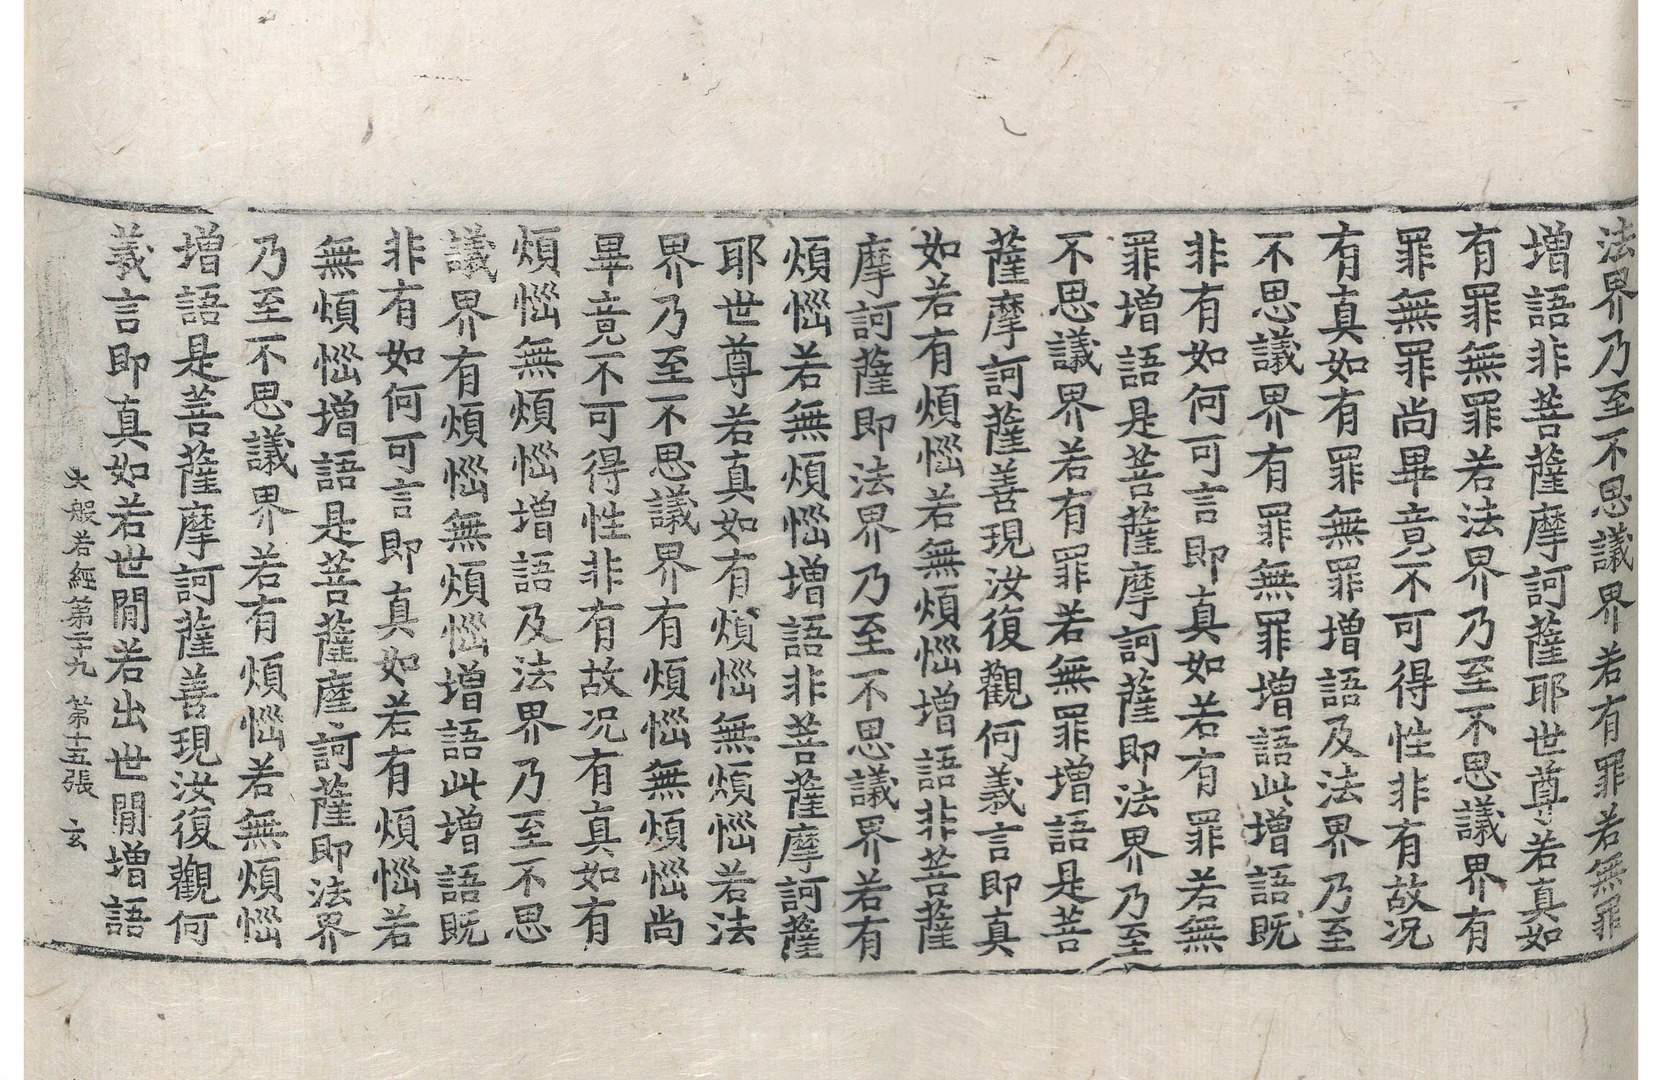 法界乃至不思議界若有罪若無罪
增語非菩薩摩訶薩耶世尊若真如
有罪無罪若法界乃至不思議界有
罪無罪尚畢竟不可得性非有故况
有真如有罪無罪增語及法界乃至
不思議界有罪無罪增語此增語既
非有如何可言即真如若有罪若無
罪增語是菩薩摩訶薩即法界乃至
不思議界若有罪若無罪增語是菩
薩摩訶薩善現汝復觀何義言即真
如若有煩惱若無煩惱增語非菩薩
摩訶薩即法界乃至不思議界若有
煩惱若無煩惱增語非菩薩摩訶薩
耶世尊若真如有煩惱無煩惱若法
界乃至不思議界有煩惱無煩惱尚
畢竟不可得性非有故况有真如有
煩惱無煩惱增語及法界乃至不思
議界有煩惱無煩惱增語此增語既
非有如何可言即真如若有煩惱若
無煩惱增語是菩薩摩訶薩即法界
乃至不思議界若有煩惱若無煩惱
增語是菩薩摩訶薩善現汝復觀何
義言即真如若世閒若出世閒增語
大般若經第二十九 第十五張 玄